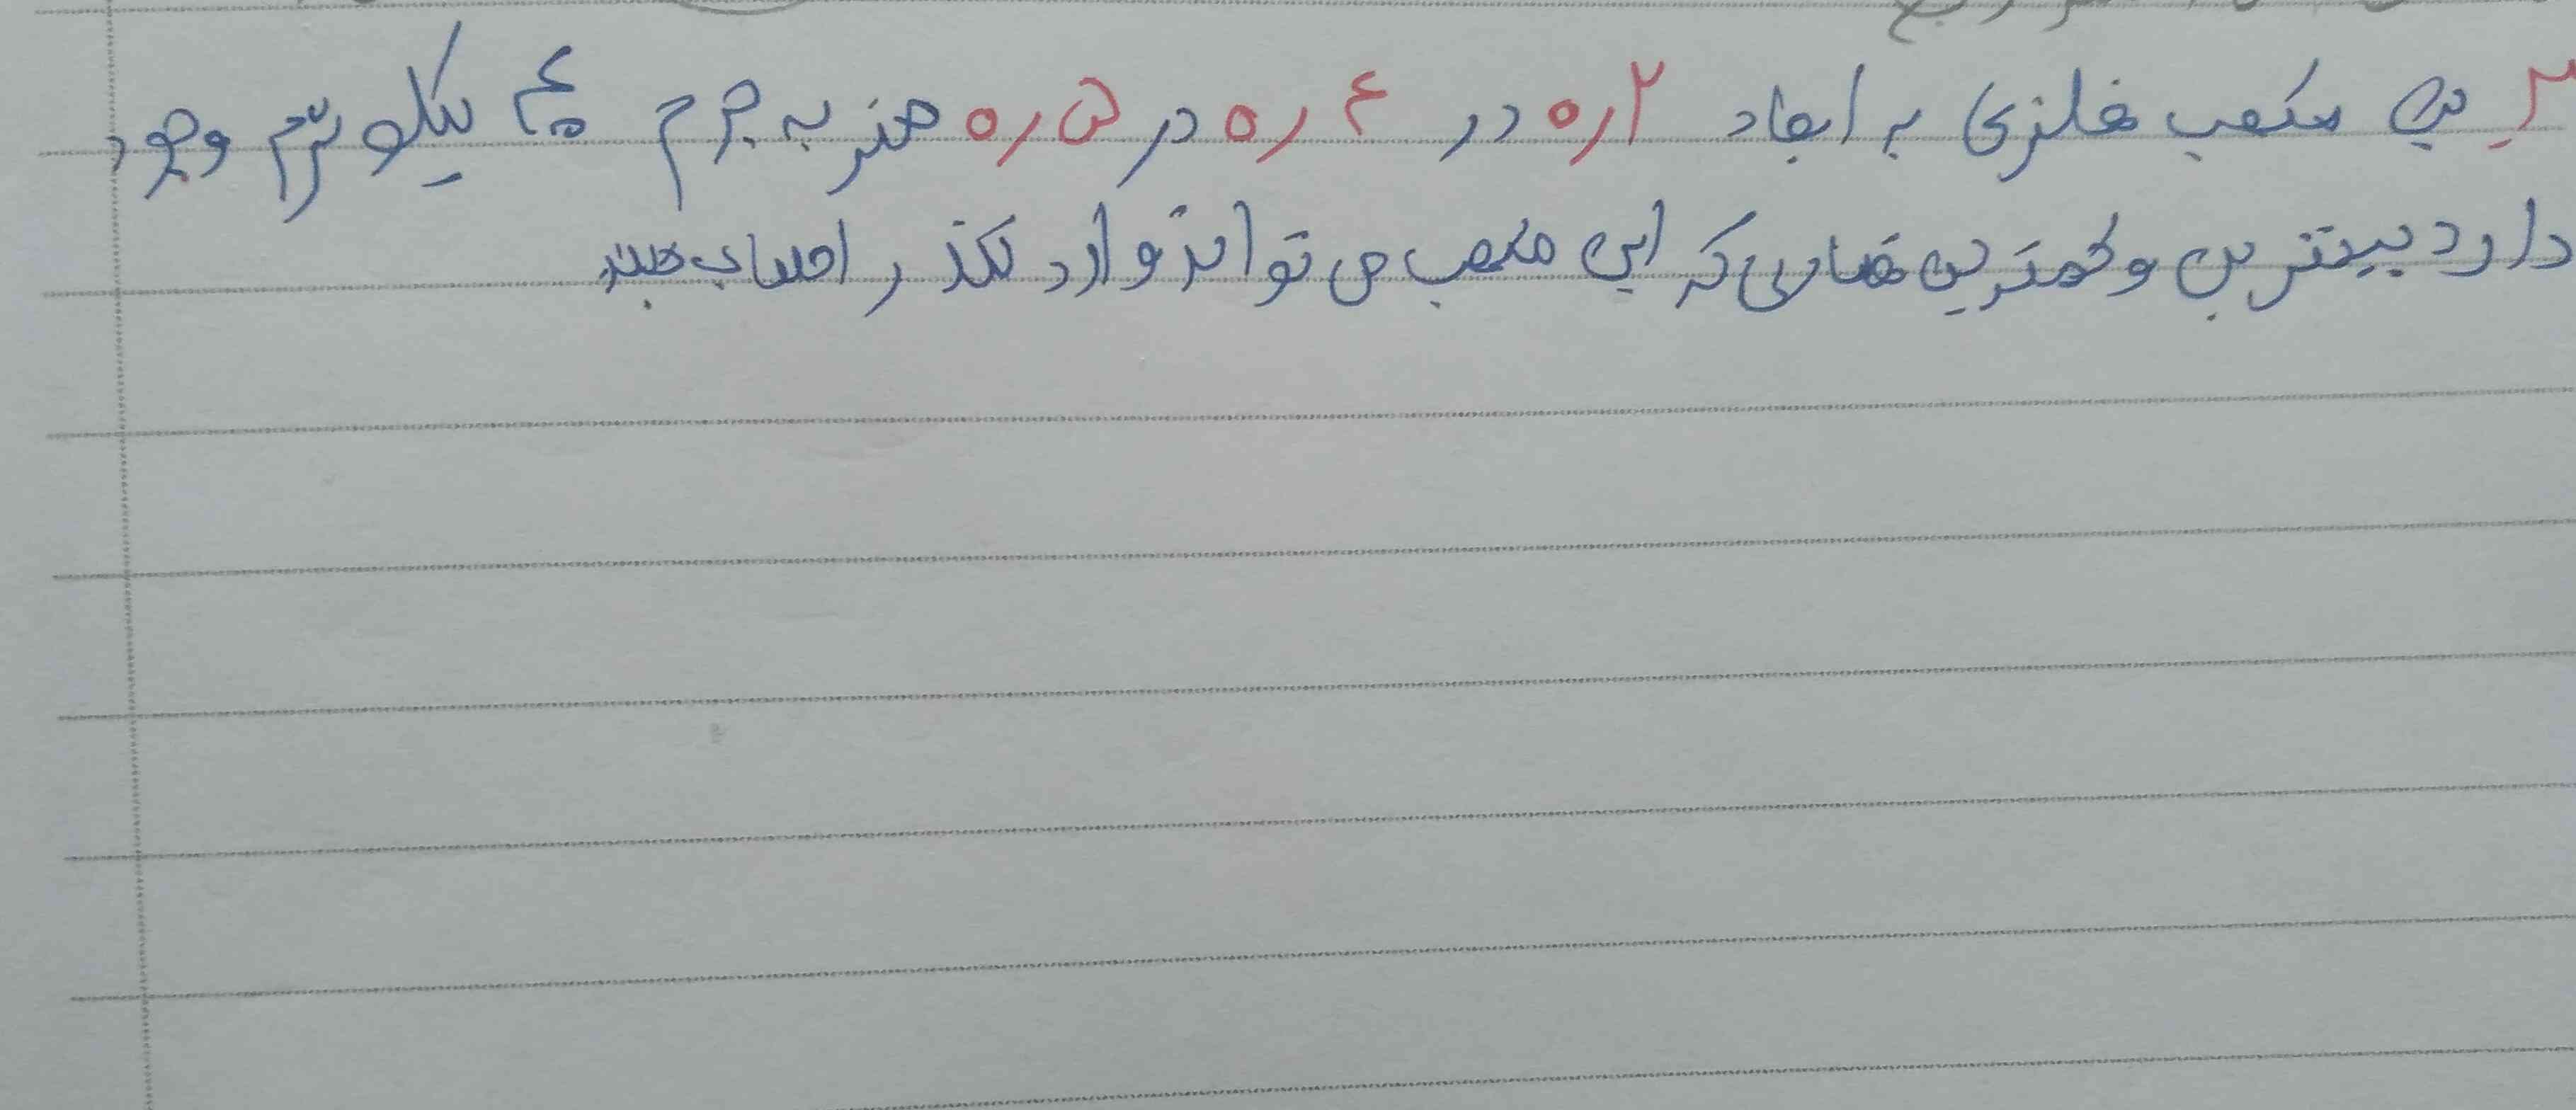 ۲ـ یک مکعب فلزی به ابعاد ۰٫۲ در ۰٫۴ در ۰٫۵ متر به جرم ۴۰ کیلوگرم وجود
دارد بیشترین و کمترین فشاری که این مکعب می تواند وارد کند را حساب کنید